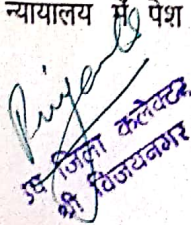 न्यायालय में पेश
उप जिला कलेक्टर
श्री विजयनगर